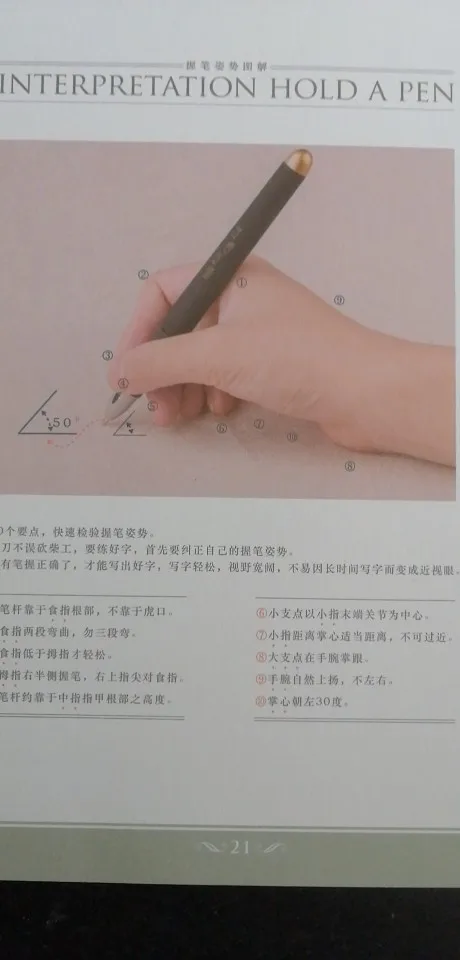 握笔姿势图解
INTERPRETATION HOLD A PEN
①
②
③
④
⑤
⑥
⑦
⑧
⑨
⑩
50°
0个要点，快速检验握笔姿势。
刀不误砍柴工，要练好字，首先要纠正自己的握笔姿势。
有笔握正确了，才能写出好字，写字轻松，视野宽阔，不易因长时间写字而变成近视眼。
笔杆靠于食指根部，不靠于虎口。
食指两段弯曲，勿三段弯。
食指低于拇指才轻松。
拇指右半侧握笔，右上指尖对食指。
笔杆约靠于中指指甲根部之高度。
⑥小支点以小指末端关节为中心。
⑦小指距离掌心适当距离，不可过近。
⑧大支点在手腕掌跟。
⑨手腕自然上扬，不左右。
⑩掌心朝左30度。
21